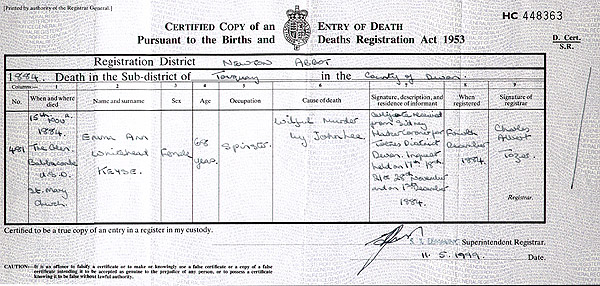 [Printed by authority of the Registrar General.]
HC 448363
CERTIFIED COPY of an ENTRY OF DEATH
Pursuant to the Births and Deaths Registration Act 1953
D. Cert.
S.R.
Registration District NEWTON ABBOT
1884. Death in the Sub-district of Torquay in the County of Devon.
Columns:— 1 2 3 4 5 6 7 8 9
No. When and where died Name and surname Sex Age Occupation Cause of death Signature, description, and residence of informant When registered Signature of registrar
481
15th Nov.
1884.
The Glen.
Babbacombe
U.S.D.
St. Mary
Church.
Emma Ann
Whitehead
KEYSE.
Female
68
years.
Spinster
Wilful Murder
by John Lee.
Certificate received
from Sidney
Hacker Coroner for
Totnes District
Devon. Inquest
held on 17th 18th
28th November
and on 1st December
1884.
Fourth
December
1884.
Charles
Albert
Tozer.
Registrar.
Certified to be a true copy of an entry in a register in my custody.
Superintendent Registrar.
11. 5. 1999. Date.
CAUTION:—It is an offence to falsify a certificate or to make or knowingly use a false certificate or a copy of a false
certificate intending it to be accepted as genuine to the prejudice of any person, or to possess a certificate
knowing it to be false without lawful authority.